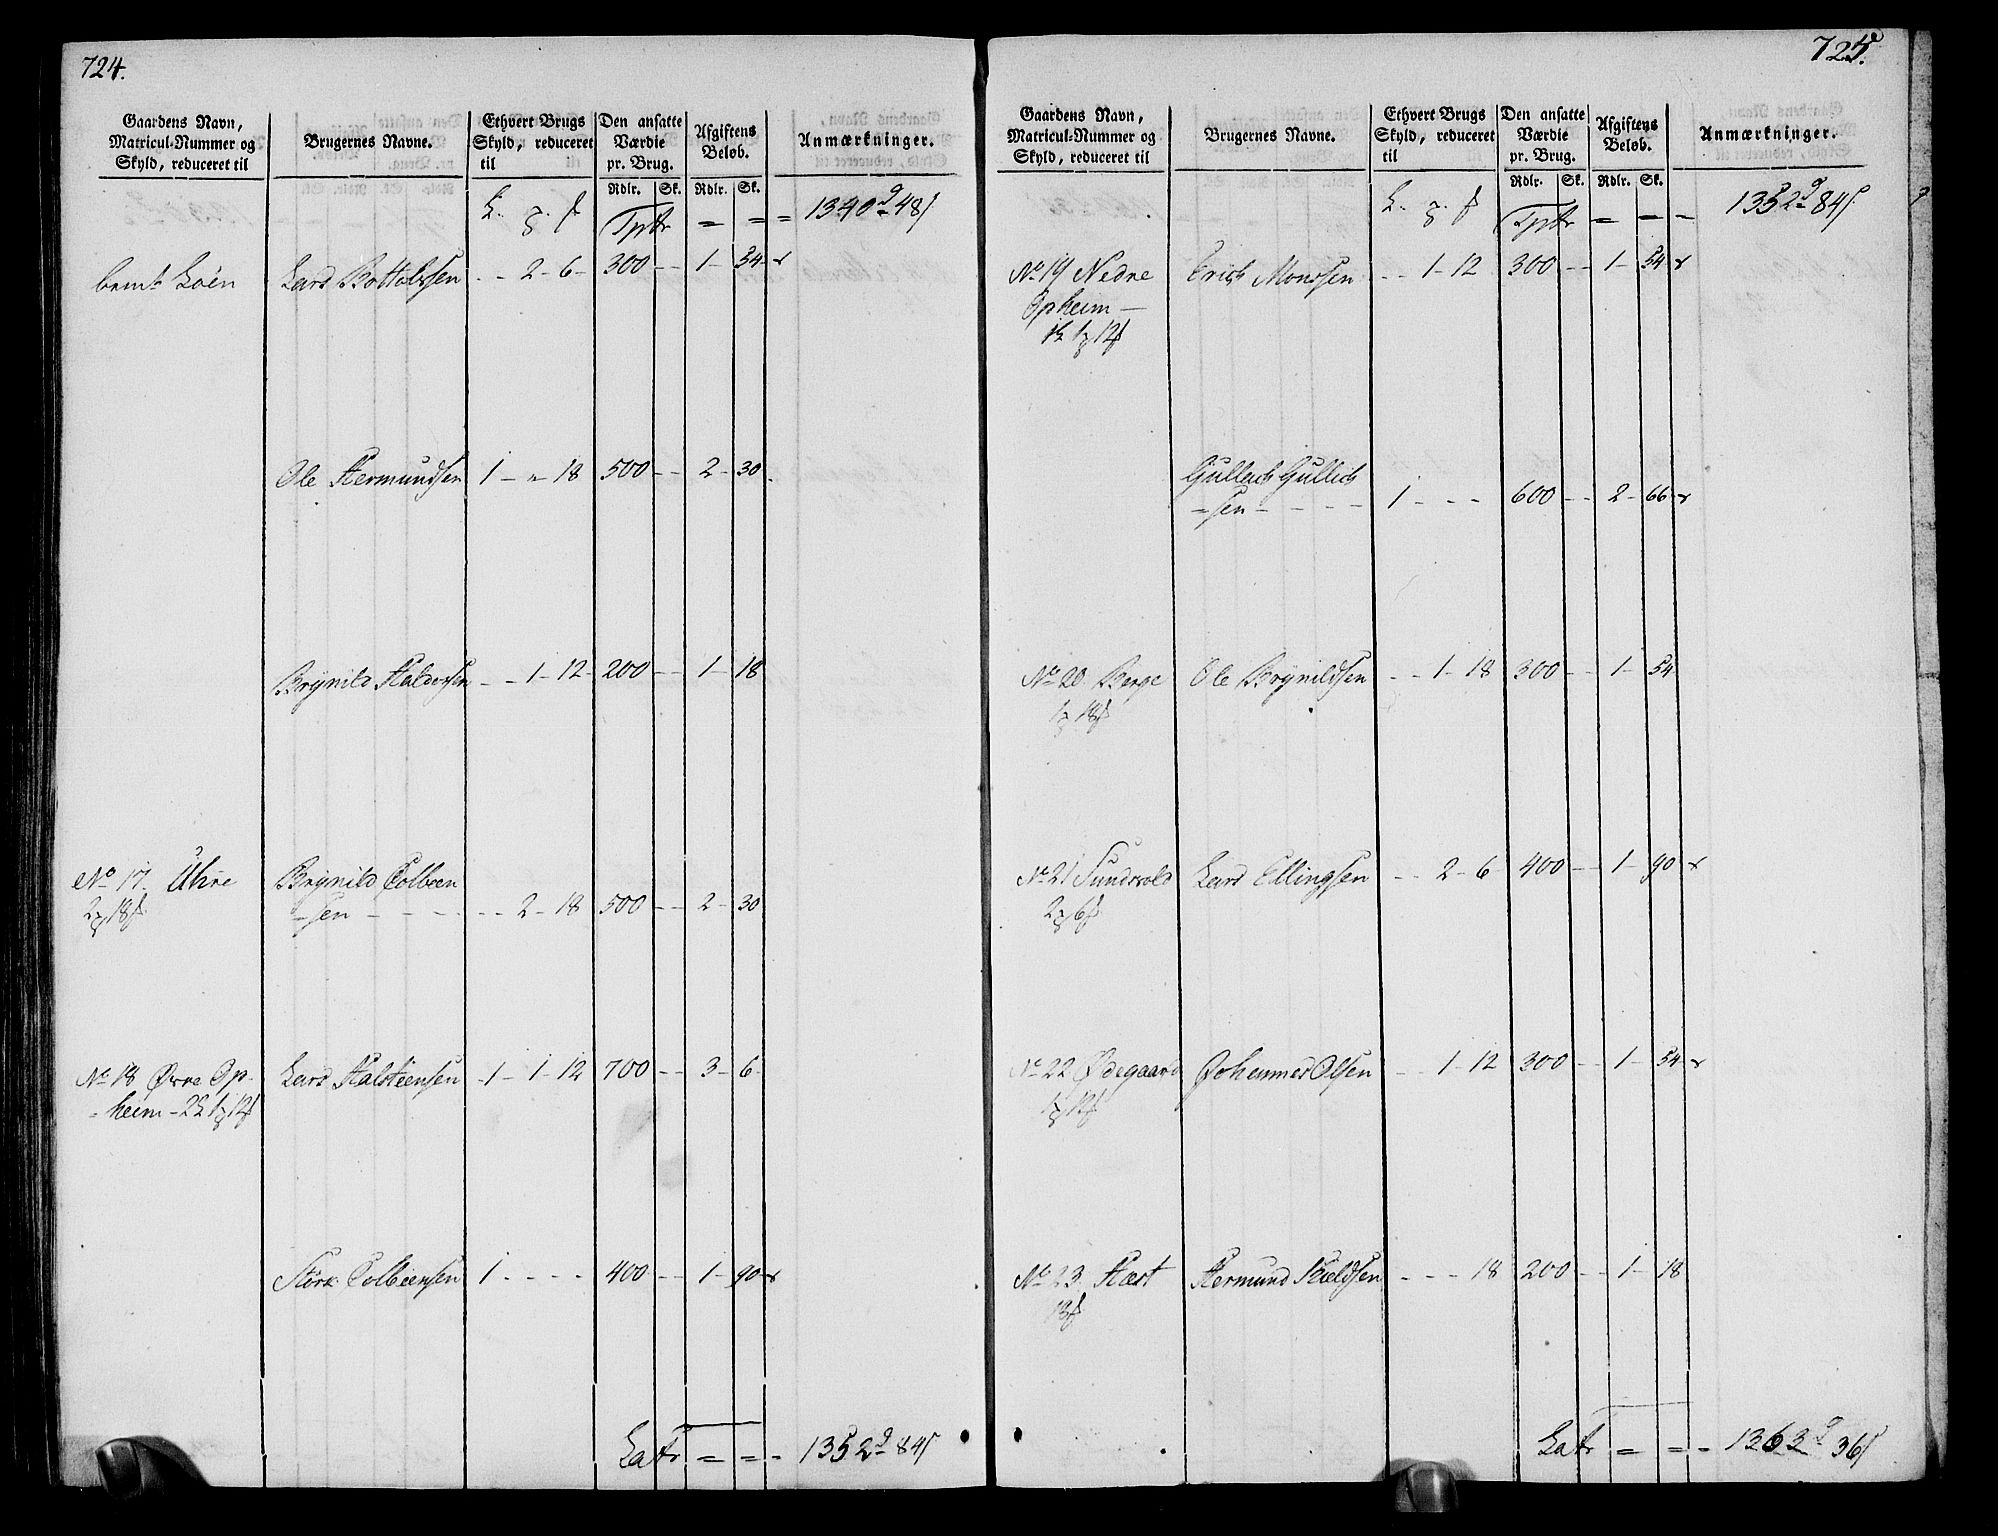 724.
Gaardens Navn, Matricul-Nummer og Skyld, reduceret til
Brugernes Navne.
Ethvert Brugs Skyld, reduceret til
Den ansatte Værdie pr. Brug.
Afgiftens Beløb.
Anmærkninger.
Rdlr. Sk. Rdlr. Sk.
Tptr = = = 1340 48
bemt Löen Lars Bottolvsen - - 2 - 6 - 300 - - 1 - 54
Ole Hermundsen 1 - " - 18 500 - - 2 - 30
Brynild Haldorsen - - 1 - 12 - 200 - - 1 - 18
No 17. Uhre Brynild Colbeen
2 18 -sen - - - - - 2 - 18 500 - - 2 - 30
No 18 Øvre Op- Lars Halsteensen 1 - 1 - 12 700 - - 3 - 6
-heim - 2 1 12
Störk Colbeensen 1 - - - - 400 - - 1 - 90
Latr = = - 1352 84
725.
Gaardens Navn, Matricul-Nummer og Skyld, reduceret til
Brugernes Navne.
Ethvert Brugs Skyld, reduceret til
Den ansatte Værdie pr. Brug.
Afgiftens Beløb.
Anmærkninger.
Rdlr. Sk. Rdlr. Sk.
Tptr = - - 1352 84
No 19 Nedre Erich Monssen - - 1 - 12 300 - - 1 - 54
Opheim -
1 1 12
Gullach Gullich
-sen - - - - 1 - - - 600 - - 2 - 66
No 20. Berge Ole Brynildsen - - 1 - 18 300 - - 1 - 54
1 18
No 21 Sundsvold Lars Ellingsen - - 2 - 6 400 - - 1 - 90
2 6
No 22 Ødegaard Johannes Olsen - - 1 - 12 300 - - 1 - 54
1 12
No 23. Hæst Hermund - - - 18 200 - - 1 - 18
18
Latr = = - 1363 36